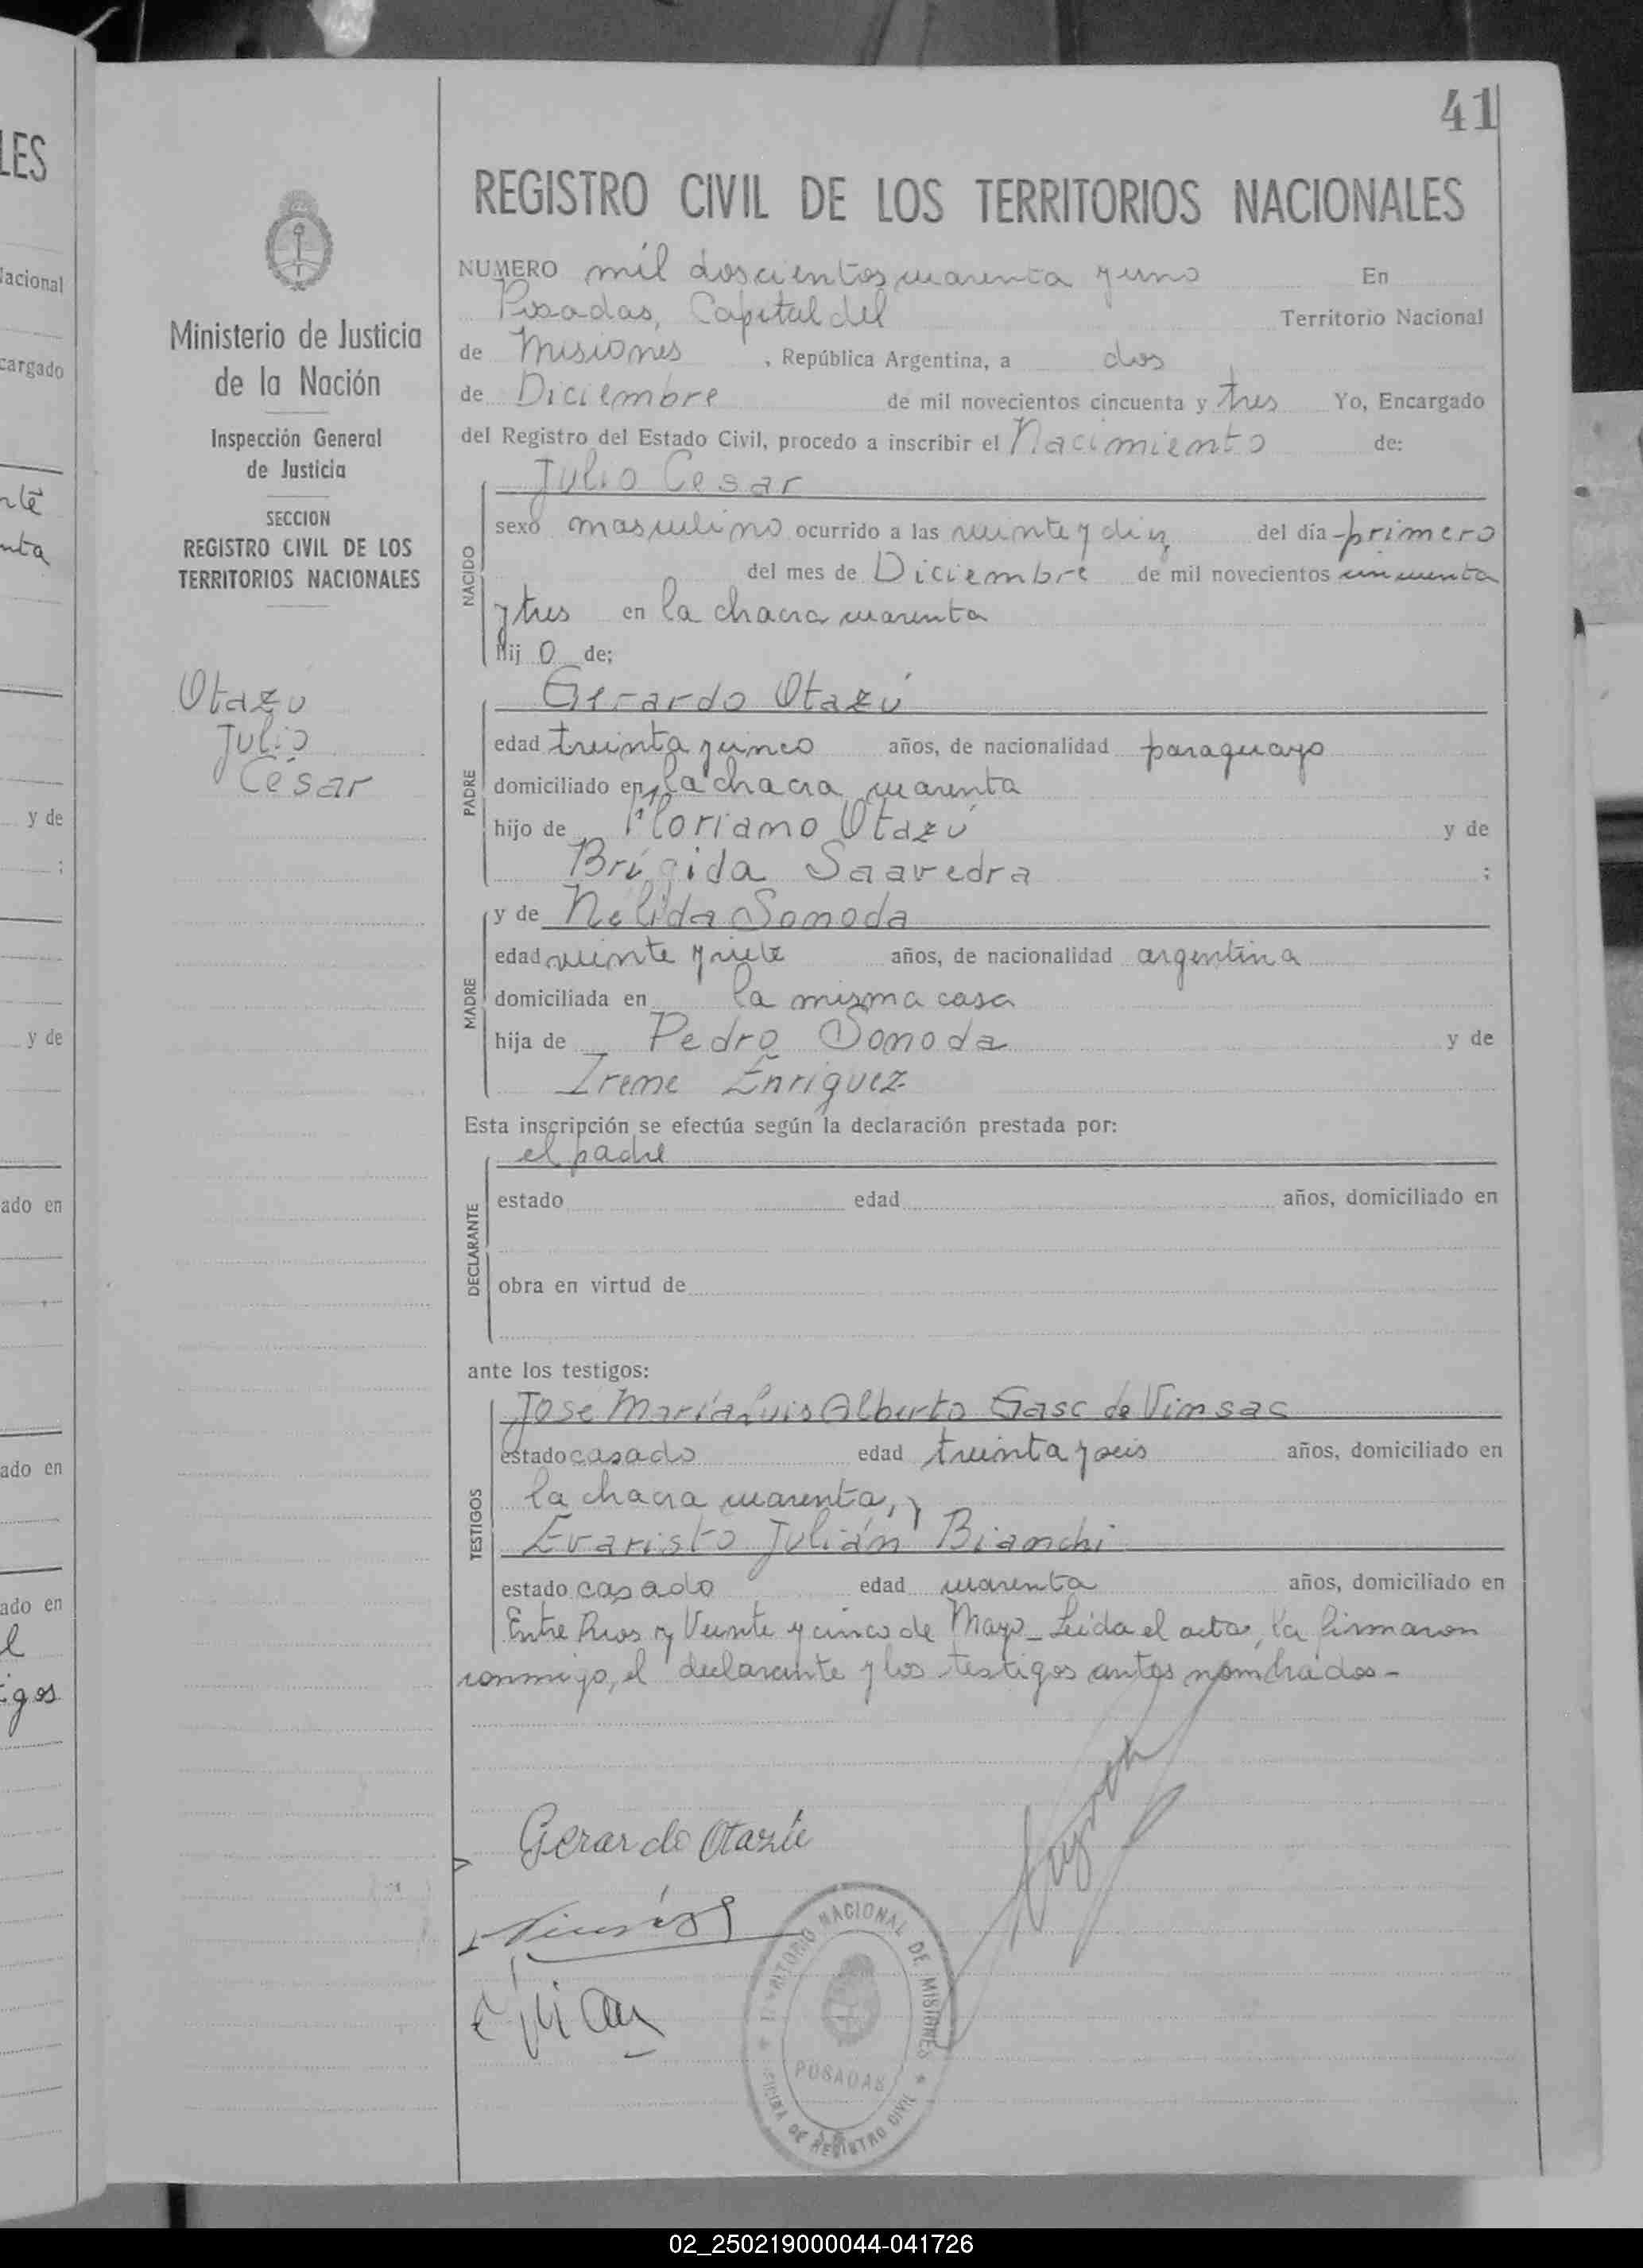 41
REGISTRO CIVIL DE LOS TERRITORIOS NACIONALES
NUMERO mil doscientos cuarenta y uno En
Posadas, Capital del Territorio Nacional
de Misiones , República Argentina, a dos
de Diciembre de mil novecientos cincuenta y tres Yo, Encargado
del Registro del Estado Civil, procedo a inscribir el Nacimiento de:
Julio Cesar
NACIDO
sexo masculino ocurrido a las veinte y diez del día primero
del mes de Diciembre de mil novecientos cincuenta
y tres en la chacra cuarenta
hij o de;
Gerardo Otazú
PADRE
edad treinta y cinco años, de nacionalidad paraguayo
domiciliado en la chacra cuarenta
hijo de Floriano Otazú y de
Brígida Saavedra ;
MADRE
y de Nelida Sonoda
edad veinte y siete años, de nacionalidad argentina
domiciliada en la misma casa
hija de Pedro Sonoda y de
Irene Enriquez
Esta inscripción se efectúa según la declaración prestada por:
el padre
DECLARANTE
estado edad años, domiciliado en
obra en virtud de
ante los testigos:
TESTIGOS
José María Luis Alberto Gasc de Vinsac
estado casado edad treinta y seis años, domiciliado en
la chacra cuarenta, y
Evaristo Julián Bianchi
estado casado edad cuarenta años, domiciliado en
Entre Rios y Veinte y cinco de Mayo_ Leída el acta, la firmaron
conmigo, el declarante y los testigos antes nombrados-
Gerardo Otazú
TERRITORIO NACIONAL DE MISIONES
POSADAS
OFICINA DE REGISTRO CIVIL
Ministerio de Justicia
de la Nación
Inspección General
de Justicia
SECCION
REGISTRO CIVIL DE LOS
TERRITORIOS NACIONALES
Otazú
Julio
César
LES
Nacional
cargado
y de
;
y de
ado en
ado en
ado en
02_250219000044-041726